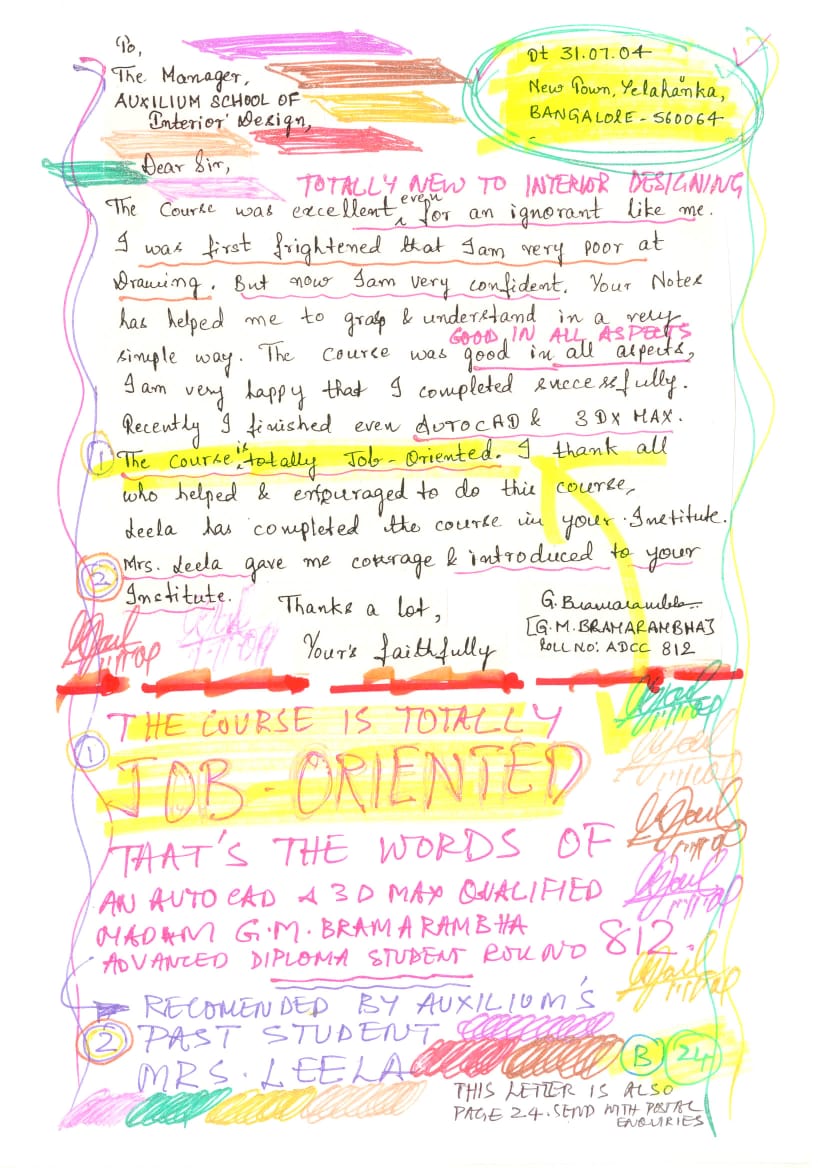 To,
The Manager,
AUXILIUM SCHOOL OF
Interior Design,
Dt 31.07.04
New Town, Yelahanka,
BANGALORE - 560064
Dear Sir,
TOTALLY NEW TO INTERIOR DESIGNING
The Course was excellent even for an ignorant like me.
I was first frightened that I am very poor at
Drawing. But now I am very confident. Your Notes
has helped me to grasp & understand in a very
GOOD IN ALL ASPECTS
simple way. The course was good in all aspects,
I am very happy that I completed successfully.
Recently I finished even AUTOCAD & 3DX MAX.
1 The Course is totally Job-Oriented. I thank all
who helped & encouraged to do this course,
Leela has completed the course in your Institute.
2 Mrs. Leela gave me courage & introduced to your
Institute.
Thanks a lot,
Your's faithfully
G. Bramarambha
[G.M. BRAMARAMBHA]
ROLL NO: ADCC 812
1 THE COURSE IS TOTALLY
JOB-ORIENTED
THAT'S THE WORDS OF
AN AUTOCAD & 3D MAX QUALIFIED
MADAM G.M. BRAMARAMBHA
ADVANCED DIPLOMA STUDENT ROLL NO 812.
RECOMENDED BY AUXILIUM'S
2 PAST STUDENT
MRS. LEELA
B 24
THIS LETTER IS ALSO
PAGE 24. SEND WITH POSTAL
ENQUIRIES